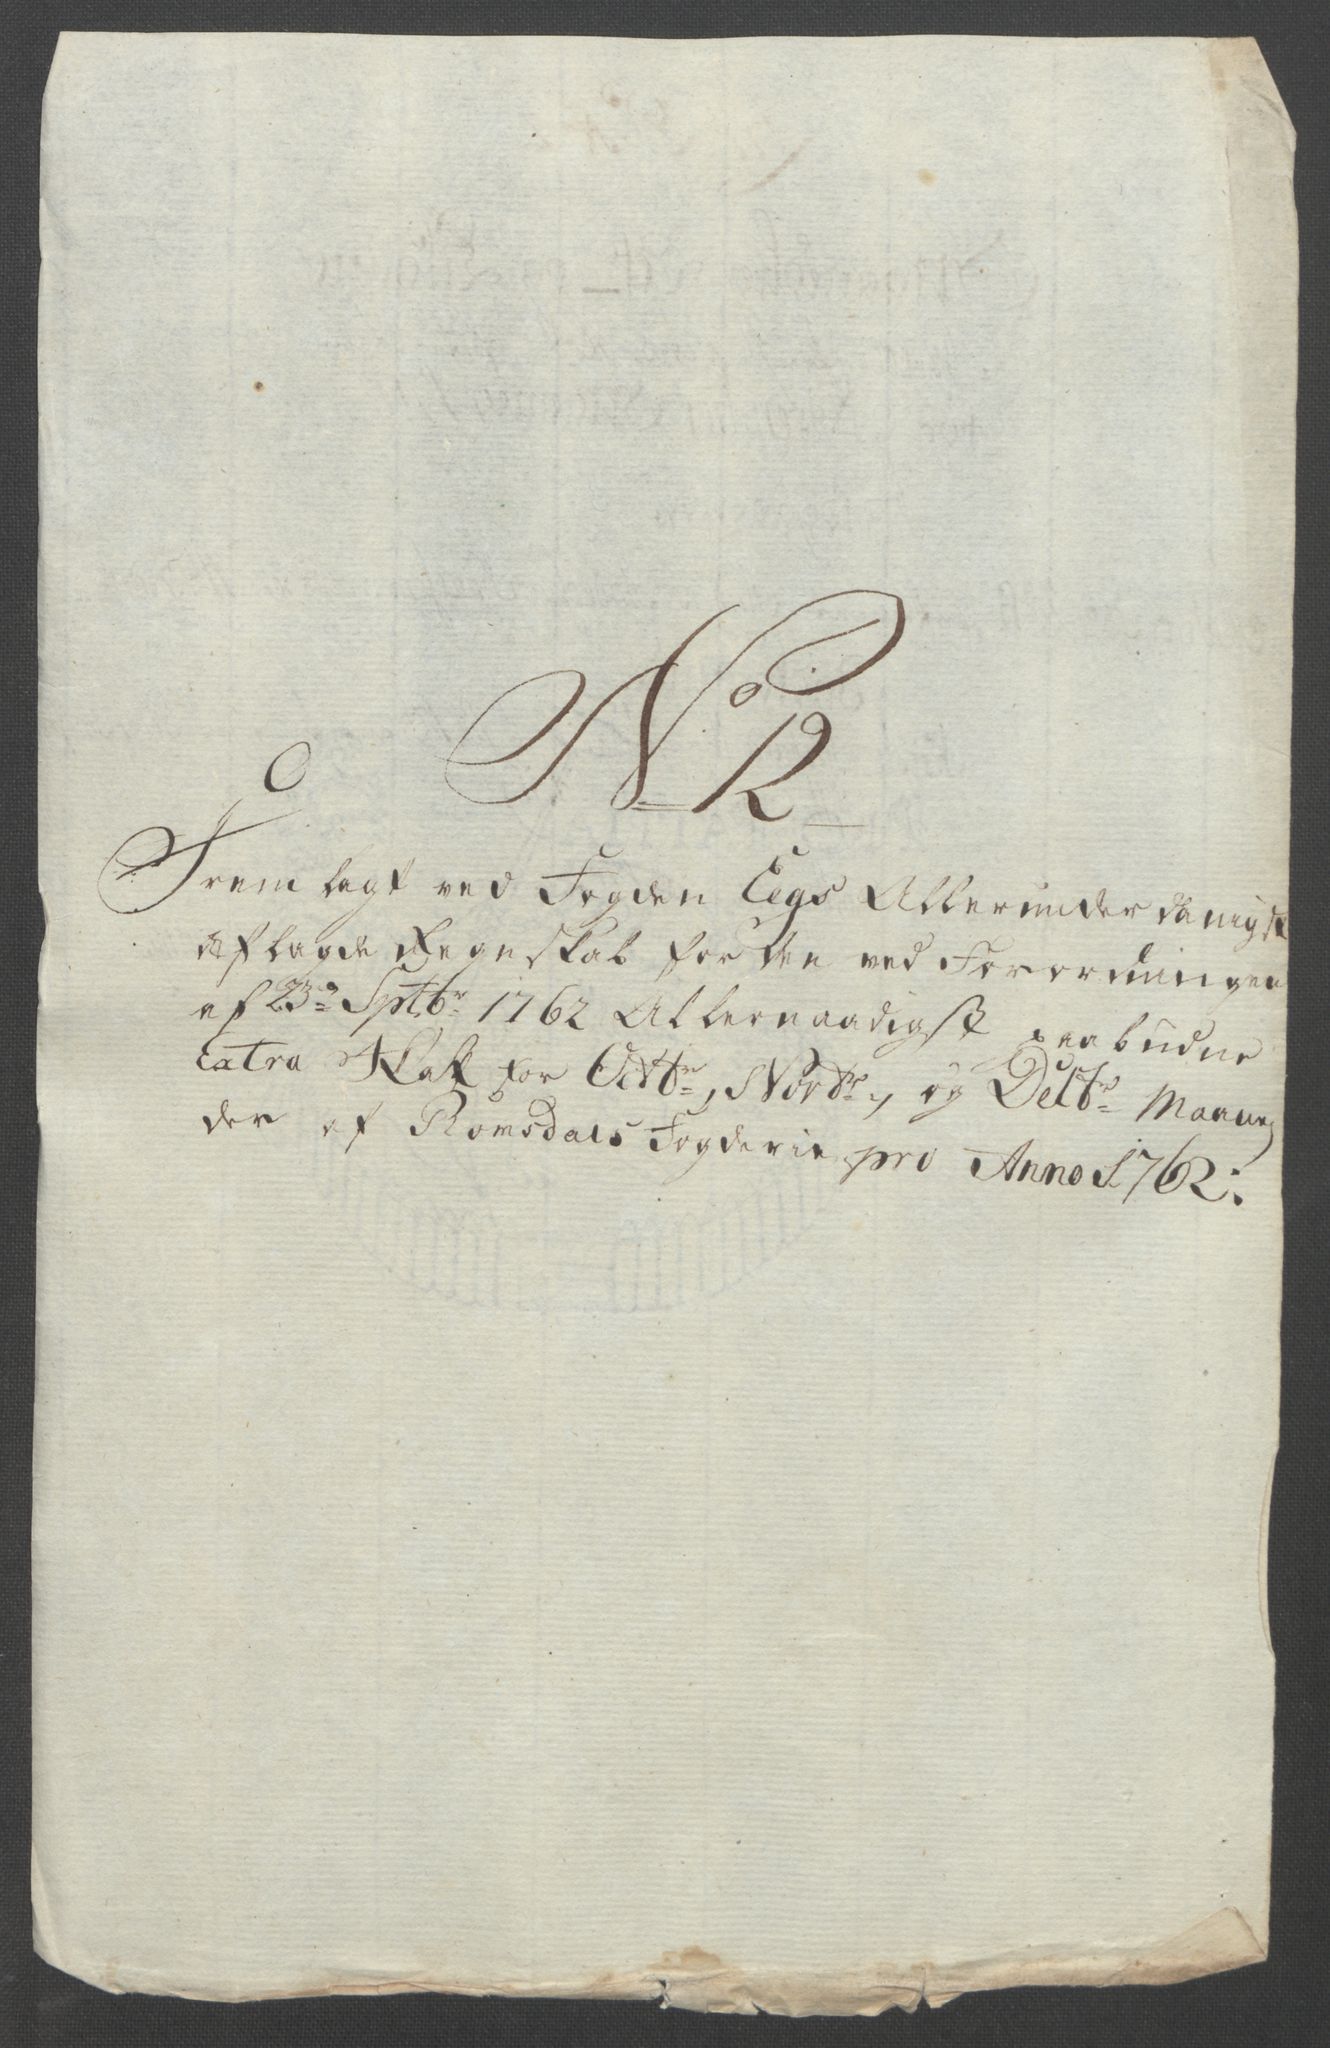 No 2
Fremlagt ved Fogden Eegs Allerunderdanigst
aflagde Regnskab for den ved Forordningen
af 23de Sptbr 1762 Allernaadigst paabudne
Extra Skatt for Octbr, Novbr, og Decbr Maane
der af Romsdals Fogderie pro Anno 1762.